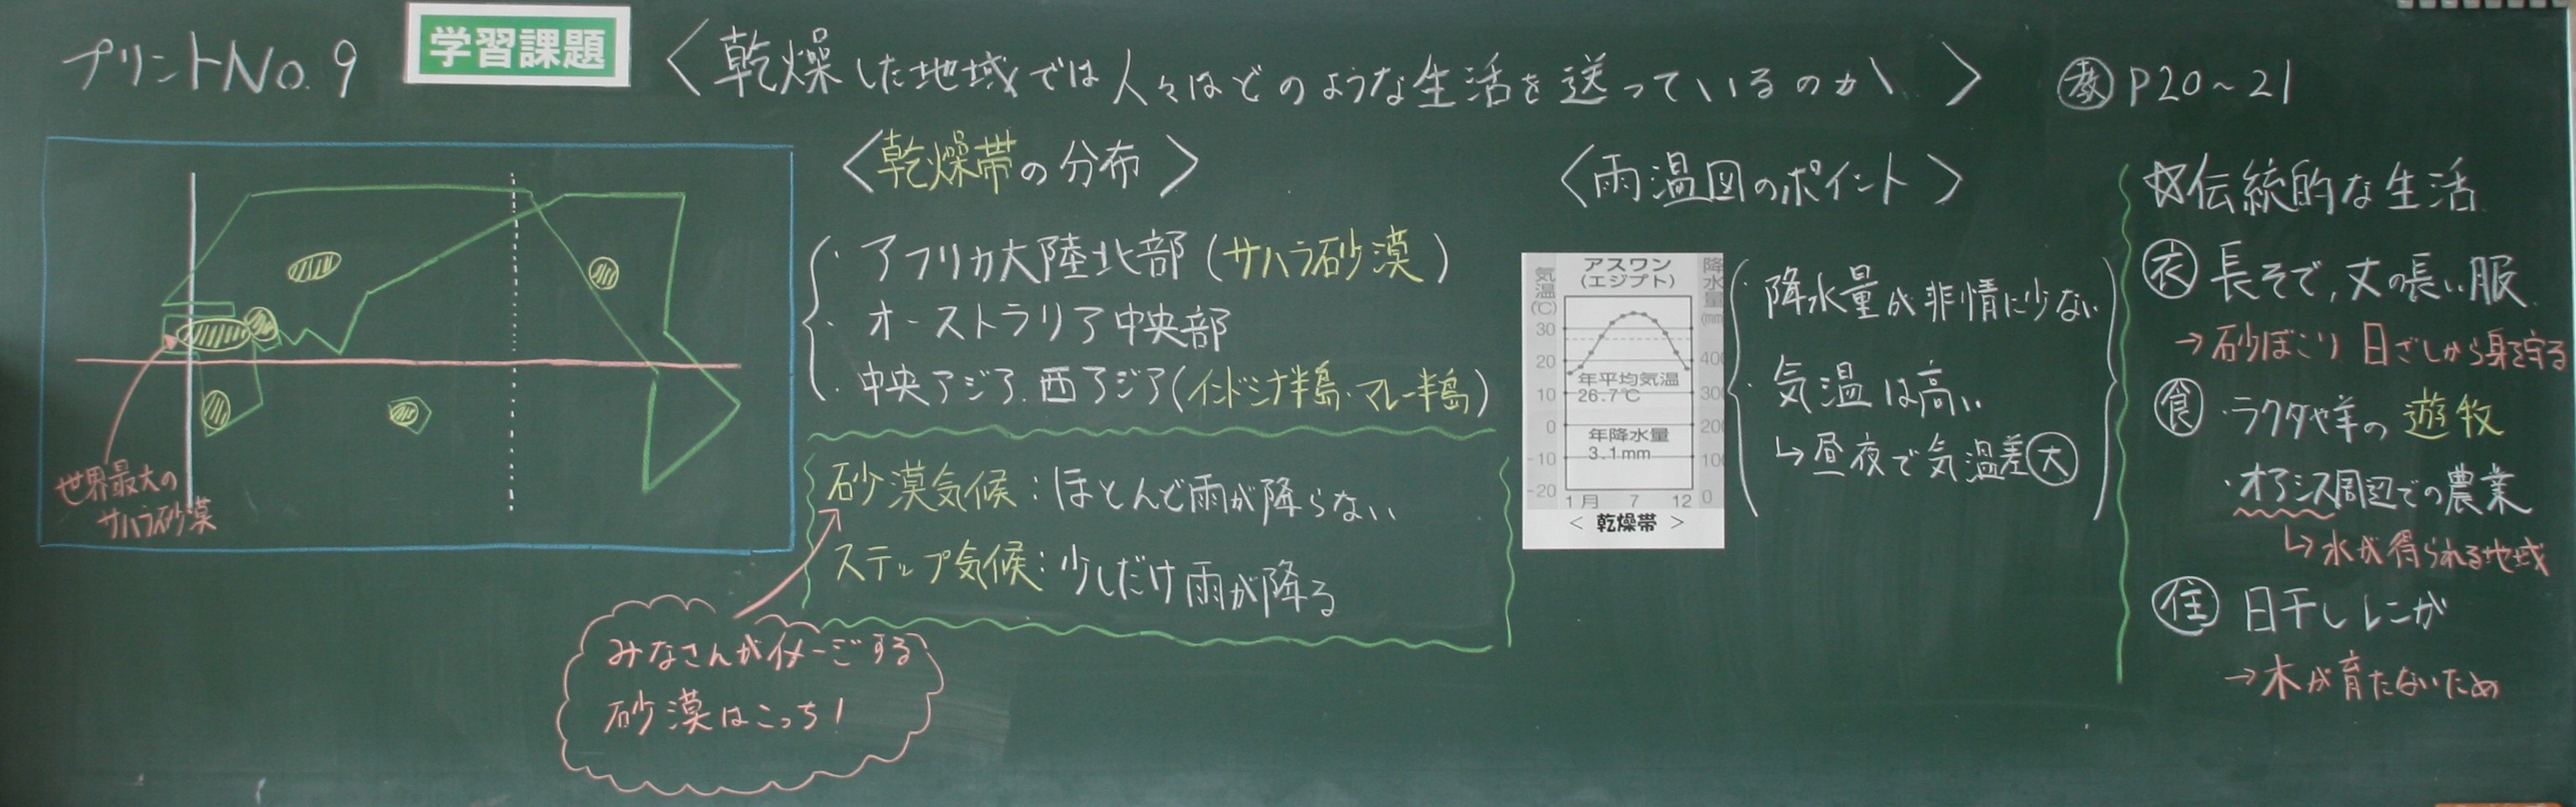 プリントNo.9
学習課題
<乾燥した地域では人々はどのような生活を送っているのか>
教 P20~21
世界最大の
サハラ砂漠
<乾燥帯の分布>
・アフリカ大陸北部(サハラ砂漠)
・オーストラリア中央部
・中央アジア.西アジア(インドシナ半島・マレー半島)
砂漠気候:ほとんど雨が降らない
ステップ気候:少しだけ雨が降る
みなさんがイメージする
砂漠はこっち!
<雨温図のポイント>
気温(℃)
アスワン
(エジプト)
降水量(mm
30
20
10
0
-10
-20
400
300
200
100
0
年平均気温
26.7℃
年降水量
3.1mm
1月 7 12
< 乾燥帯 >
・降水量が非情に少ない
・気温は高い
↳昼夜で気温差大
☆伝統的な生活
衣 長そで,丈の長い服
→砂ぼこり 日ざしから身を守る
食 ・ラクダや羊の遊牧
・オアシス周辺での農業
↳水が得られる地域
住 日干しレンガ
→木が育たないため